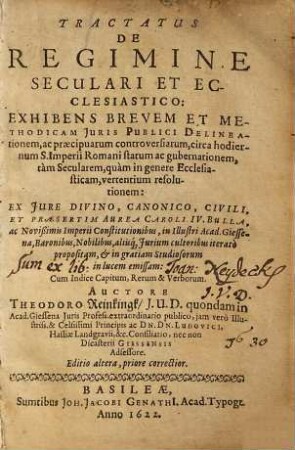 TRACTATUS
DE
REGIMINE
SECULARI ET EC-
CLESIASTICO:
EXHIBENS BREVEM ET ME-
THODICAM JURIS PUBLICI DELINEA-
tionem, ac præcipuarum controversiarum, circa hodier-
num S. Imperii Romani statum ac gubernationem,
tàm Secularem, quàm in genere Ecclesia-
sticam, vertentium resolu-
tionem:
EX JURE DIVINO, CANONICO, CIVILI,
ET PRÆSERTIM AUREA CAROLI IV. BULLA,
ac Novißimis Imperii Constitutionibus, in Illustri Acad. Giesse-
na, Baronibus, Nobilibus, aliisq́, Jurium cultoribus iteratò
propositam, & in gratiam Studiosorum
Sum ex lib. in lucem emissam: Joan:
Cum Indice Capitum, Rerum & Verborum.
AUCTORE J.V.D.
THEODORO Reinkingk/ J.U.D. quondam in
Acad. Giessena Juris Profess. extraordinario publico, jam verò Illu-
striss. & Celsissimi Principis ac DN. DN. LUDOVICI,
Hassiæ Landgravii, &c. Consiliario, nec non
Dicasterii GIESSENSIS 30
Adsessore.
Editio altera, priore correctior.
BASILEÆ,
Sumtibus JOH. JACOBI GENATHI. Acad. Typogr.
Anno 1622.